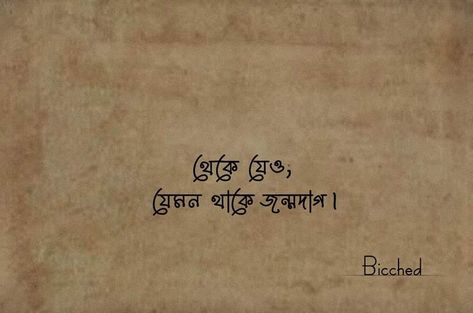 থেকে যেও,
যেমন থাকে জন্মদাগ।
Bicched